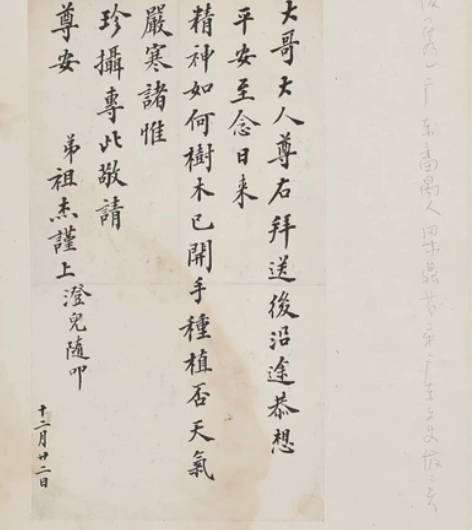 大哥大人尊右拜送後沿途恭想
平安至念日来
精神如何樹木已開手種植否天氣
嚴寒諸惟
珍攝專此敬請
尊安
弟祖杰謹上澄兒随叩
十二月廿二日